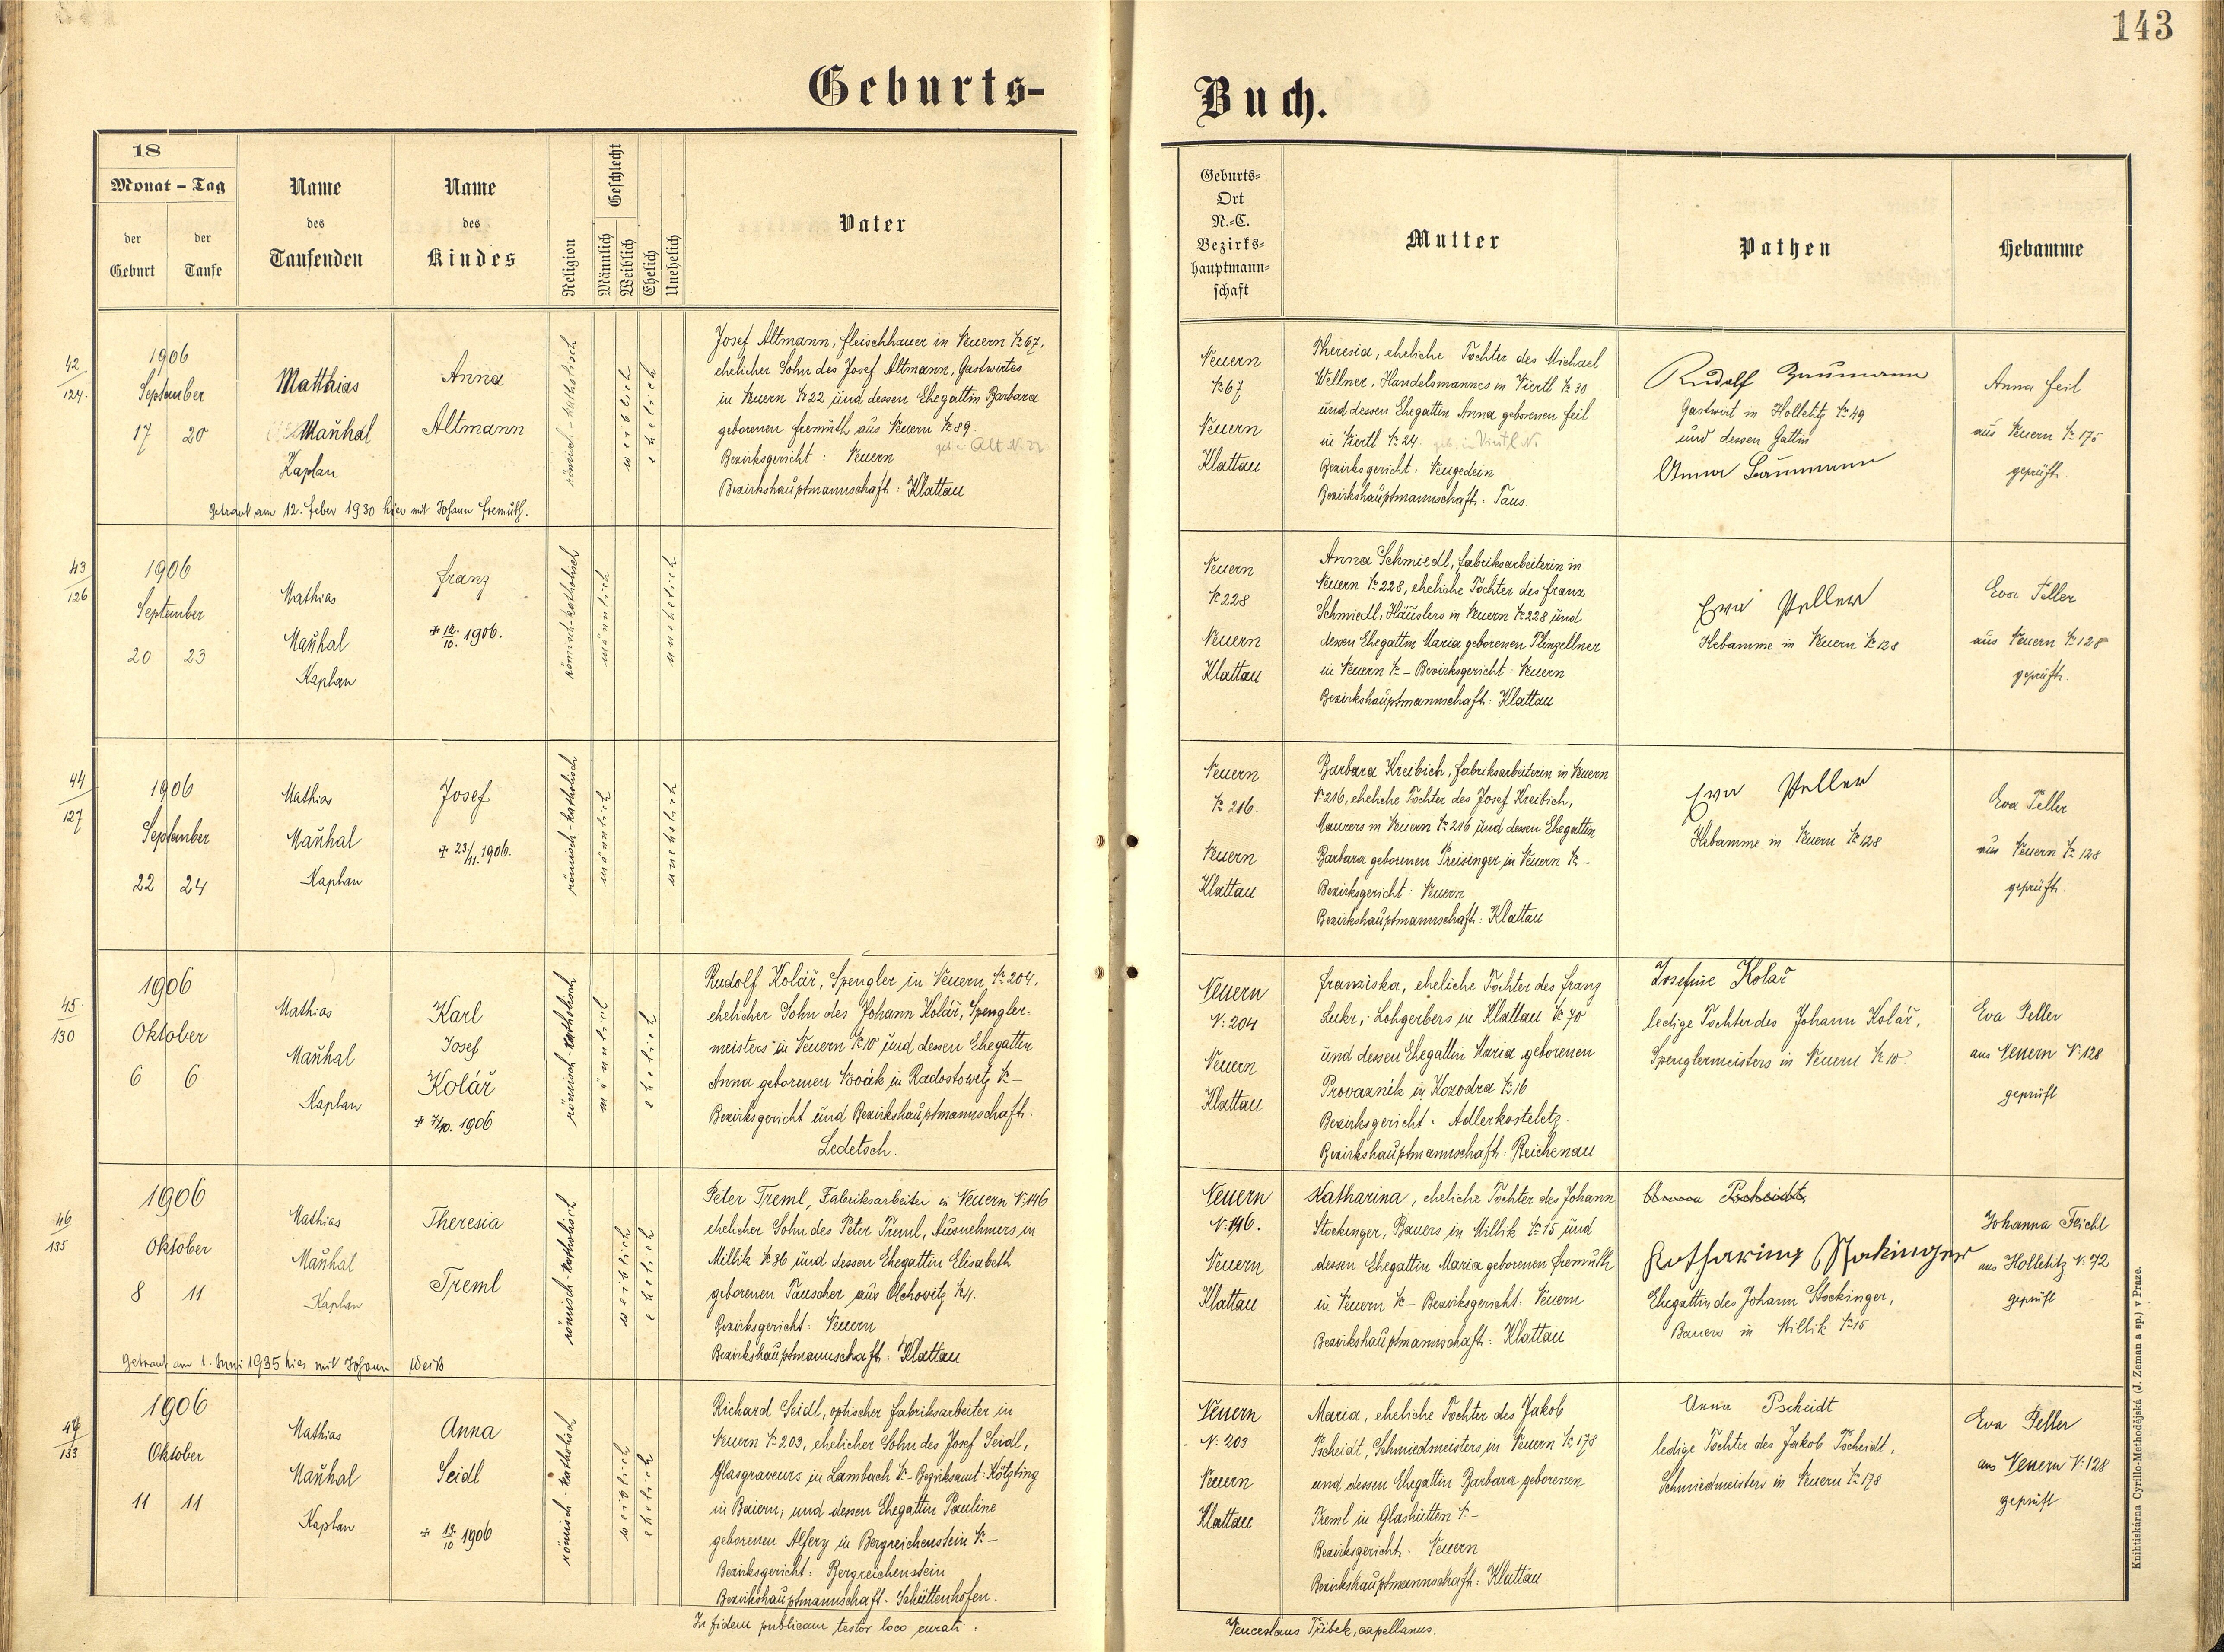 143
Geburts-
Buch.
18
Monat - Tag
der Geburt
der Taufe
Name des Taufenden
Name des Kindes
Religion
Geschlecht
Männlich
Weiblich
Ehelich
Unehelich
Vater
Geburts-
Ort
N.-C.
Bezirks-
hauptmann-
schaft
Mutter
Pathen
Hebamme
42
124.
1906
September
17 20
Matthias
Maňhal
Kaplan
Anna
Altmann
römisch-katholisch
weiblich
ehelich
Josef Altmann, Fleischhauer in Neuern № 67,
ehelicher Sohn des Josef Altmann, Gastwirtes
in Neuern № 22 und dessen Ehegattin Barbara
geborenen Fremuth aus Neuern № 89
Bezirksgericht: Neuern
Bezirkshauptmannschaft: Klattau
Getraut am 12. Feber 1930 hier mit Johann Fremuth.
Neuern
№ 67
Neuern
Klattau
Theresia, eheliche Tochter des Michael
Wellner, Handelsmannes in Viertl № 30
und dessen Ehegattin Anna geborenen Feil
in Viertl № 24.
Bezirksgericht: Neugedein
Bezirkshauptmannschaft: Taus.
Rudolf Baumann
Gastwirt in Holletitz № 49
und dessen Gattin
Anna Baumann
Anna Feil
aus Neuern № 175
geprüft.
43
126
1906
September
20 23
Mathias
Maňhal
Kaplan
Franz
+ 12./10. 1906.
römisch-katholisch
männlich
unehelich
Neuern
№ 228
Neuern
Klattau
Anna Schmiedl, Fabriksarbeiterin in
Neuern № 228, eheliche Tochter des Franz
Schmiedl, Häuslers in Neuern № 228 und
dessen Ehegattin Maria geborenen Plinzellner
in Neuern № - Bezirksgericht: Neuern
Bezirkshauptmannschaft: Klattau
Eva Peller
Hebamme in Neuern № 128
Eva Peller
aus Neuern № 128
geprüft.
44
127
1906
September
22 24
Mathias
Maňhal
Kaplan
Josef
+ 23/11. 1906.
römisch-katholisch
männlich
unehelich
Neuern
№ 216.
Neuern
Klattau
Barbara Kreibich, Fabriksarbeiterin in Neuern
№ 216, eheliche Tochter des Josef Kreibich,
Maurers in Neuern № 216 und dessen Ehegattin
Barbara geborenen Preisinger in Neuern № -
Bezirksgericht: Neuern
Bezirkshauptmannschaft: Klattau
Eva Peller
Hebamme in Neuern № 128
Eva Peller
aus Neuern № 128
geprüft.
45.
130
1906
Oktober
6 6
Mathias
Maňhal
Kaplan
Karl
Josef
Kolář
+ 7/10. 1906
römisch-katholisch
männlich
ehelich
Rudolf Kolář, Spengler in Neuern № 204,
ehelicher Sohn des Johann Kolář, Spengler-
meisters in Neuern № 10 und dessen Ehegattin
Anna geborenen Novák in Radostowitz № -
Bezirksgericht und Bezirkshauptmannschaft.
Ledetsch.
Neuern
N. 204
Neuern
Klattau
Franziska, eheliche Tochter des Franz
Lukr, Lohgerbers in Klattau № 70
und dessen Ehegattin Maria geborenen
Provazník in Kozodra № 16
Bezirksgericht. Adlerkosteletz.
Bezirkshauptmannschaft: Reichenau
Josefine Kolař
ledige Tochter des Johann Kolář,
Spenglermeisters in Neuern № 10
Eva Peller
aus Neuern N. 128
geprüft
46
135
1906
Oktober
8 11
Mathias
Maňhal
Kaplan
Theresia
Treml
römisch-katholisch
weiblich
ehelich
Peter Treml, Fabriksarbeiter in Neuern N. 146
ehelicher Sohn des Peter Treml, Ausnehmers in
Millik № 36 und dessen Ehegattin Elisabeth
geborenen Tauscher aus Olchowitz № 4.
Bezirksgericht: Neuern
Bezirkshauptmannschaft: Klattau
Getraut am 1. Juni 1935 hier mit Johann Weiß
Neuern
N. 146.
Neuern
Klattau
Katharina, eheliche Tochter des Johann
Stockinger, Bauers in Millik № 15 und
dessen Ehegattin Maria geborenen Fremuth
in Neuern № - Bezirksgericht: Neuern
Bezirkshauptmannschaft: Klattau
Anna Pscheidt,
Katharina Stokinger
Ehegattin des Johann Stockinger,
Bauers in Millik № 15
Johanna Feichl
aus Holletitz N. 72
geprüft
47
133
1906
Oktober
11 11
Mathias
Maňhal
Kaplan
Anna
Seidl
+ 13./10 1906
römisch-katholisch
weiblich
ehelich
Richard Seidl, optischer Fabriksarbeiter in
Neuern № 203, ehelicher Sohn des Josef Seidl,
Glasgraveurs in Lambach № - Bezirksamt: Kötzting
in Baiern, und dessen Ehegattin Pauline
geborenen Alfery in Bergreichenstein № -
Bezirksgericht: Bergreichenstein
Bezirkshauptmannschaft. Schüttenhofen.
Neuern
N. 203
Neuern
Klattau
Maria, eheliche Tochter des Jakob
Pscheidt, Schmiedmeisters in Neuern № 178
und dessen Ehegattin Barbara geborenen
Treml in Glashütten № -
Bezirksgericht. Neuern
Bezirkshauptmannschaft: Klattau
Anna Pscheidt
ledige Tochter des Jakob Pscheidt,
Schmiedmeisters in Neuern № 178
Eva Peller
aus Neuern N. 128
geprüft
In fidem publicam testor loco curati.
Venceslaus Tříbek, capellanus.
Knihtiskárna Cyrillo-Methodějská (J. Zeman a sp.) v Praze.